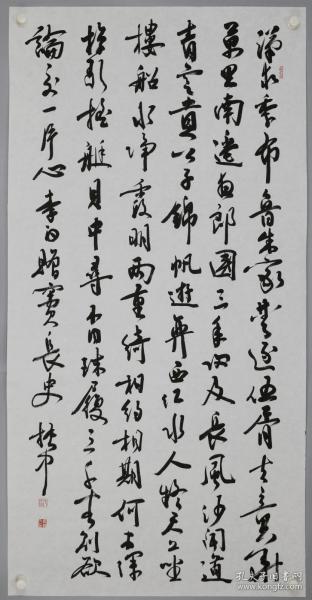 漢求季布魯朱家楚逐伍胥去章華
萬里南遷夜郎國三年歸及長風沙聞道
青雲貴公子錦帆遊弈西江水人疑天上坐
樓船水淨霞明兩重綺相約相期何太深
棹歌搖艇月中尋不同珠履三千客別欲
論交一片心 李白贈竇長史